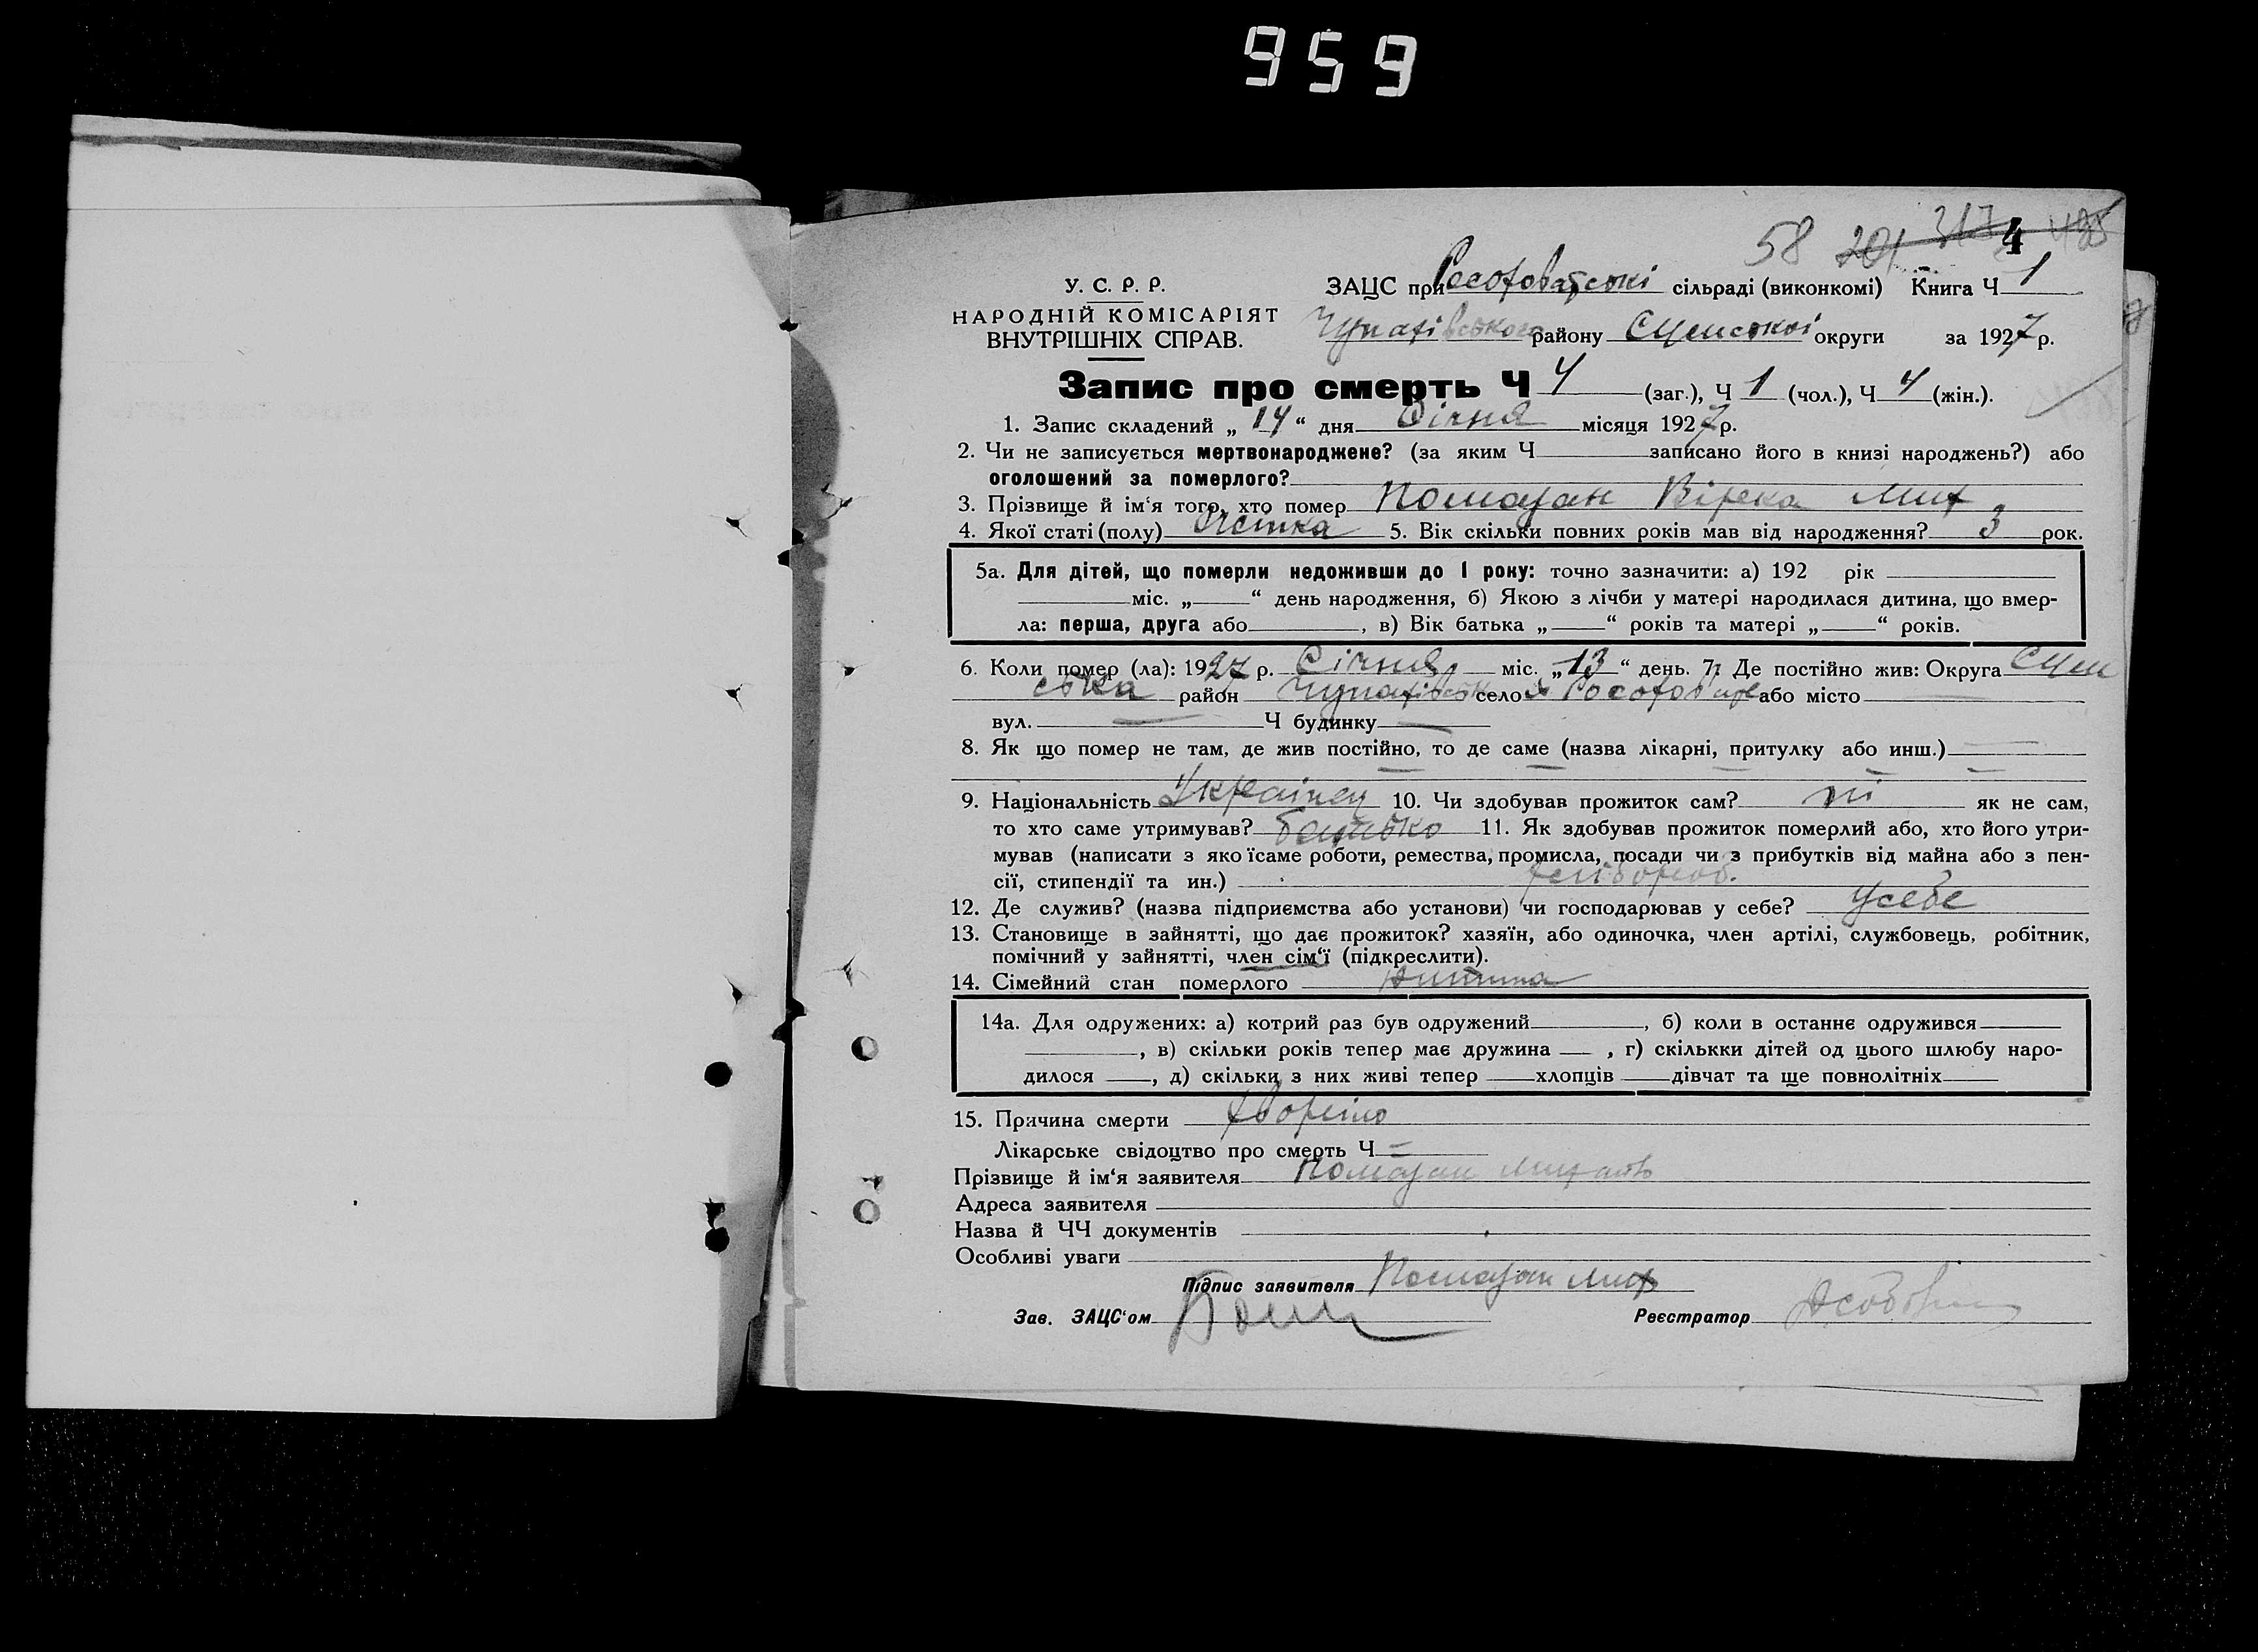 959
58 201 317 4 485
У. С. Р. Р.
НАРОДНІЙ КОМІСАРІЯТ
ВНУТРІШНІХ СПРАВ.
ЗАЦС при сільраді (виконкомі) Книга Ч 1
Чупахівського району Сумської округи за 1927 р.
Запис про смерть Ч 4 (заг.), Ч 1 (чол.), Ч 4 (жін.).
1. Запис складений „ 14 “ дня Січня місяця 1927 р.
2. Чи не записується мертвонароджене? (за яким Ч записано його в книзі народжень?) або
оголошений за померлого?
3. Прізвище й ім‘я того, хто помер Помазан Мих
4. Якої статі (полу) 5. Вік скільки повних років мав від народження? 3 рок.
5а. Для дітей, що померли недоживши до 1 року: точно зазначити: а) 192 рік
міс. „ “ день народження, б) Якою з лічби у матері народилася дитина, що вмер-
ла: перша, друга або , в) Вік батька „ “ років та матері „ “ років.
6. Коли помер (ла): 1927 р. Січня міс. „ 13 “ день. 7. Де постійно жив: Округа Сум
ська район Чупахівськ село або місто
вул. — Ч будинку —
8. Як що помер не там, де жив постійно, то де саме (назва лікарні, притулку або инш.) —
9. Національність Українец 10. Чи здобував прожиток сам? ні як не сам,
то хто саме утримував? батько 11. Як здобував прожиток померлий або, хто його утри-
мував (написати з якоїсаме роботи, ремества, промисла, посади чи з прибутків від майна або з пен-
сії, стипендії та ин.) хлібороб.
12. Де служив? (назва підприємства або установи) чи господарював у себе? усебе
13. Становище в зайнятті, що дає прожиток? хазяїн, або одиночка, член артілі, службовець, робітник,
помічний у зайнятті, член сім‘ї (підкреслити).
14. Сімейний стан померлого дитина
14а. Для одружених: а) котрий раз був одружений , б) коли в останнє одружився
, в) скільки років тепер має дружина , г) скількки дітей од цього шлюбу наро-
дилося , д) скільки з них живі тепер хлопців дівчат та ще повнолітніх
15. Причина смерти
Лікарське свідоцтво про смерть Ч =
Прізвище й ім‘я заявителя Помазан
Адреса заявителя
Назва й ЧЧ документів
Особливі уваги
Підпис заявителя Помазан Мих
Зав. ЗАЦС‘ом Реєстратор